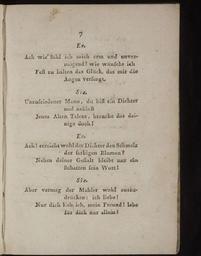 7
Er.
Ach wie fühl ich mich arm und unver-
mögend! wie wünsche ich
Fest zu halten das Glück, das mir die
Augen versengt.
Sie.
Unzufriedener Mann, du bist ein Dichter
und
Jenes Alten Talent, brauche das dei-
nige doch!
Er.
Ach! erreicht wohl der Dichter den Schmelz
der farbigen Blumen?
Neben deiner Gestalt bleibt nur ein
Schatten sein Wort!
Sie.
Aber vermag der Mahler wohl auszu-
drücken: ich liebe!
Nur dich lieb ich, mein Freund! lebe
für dich nur allein!